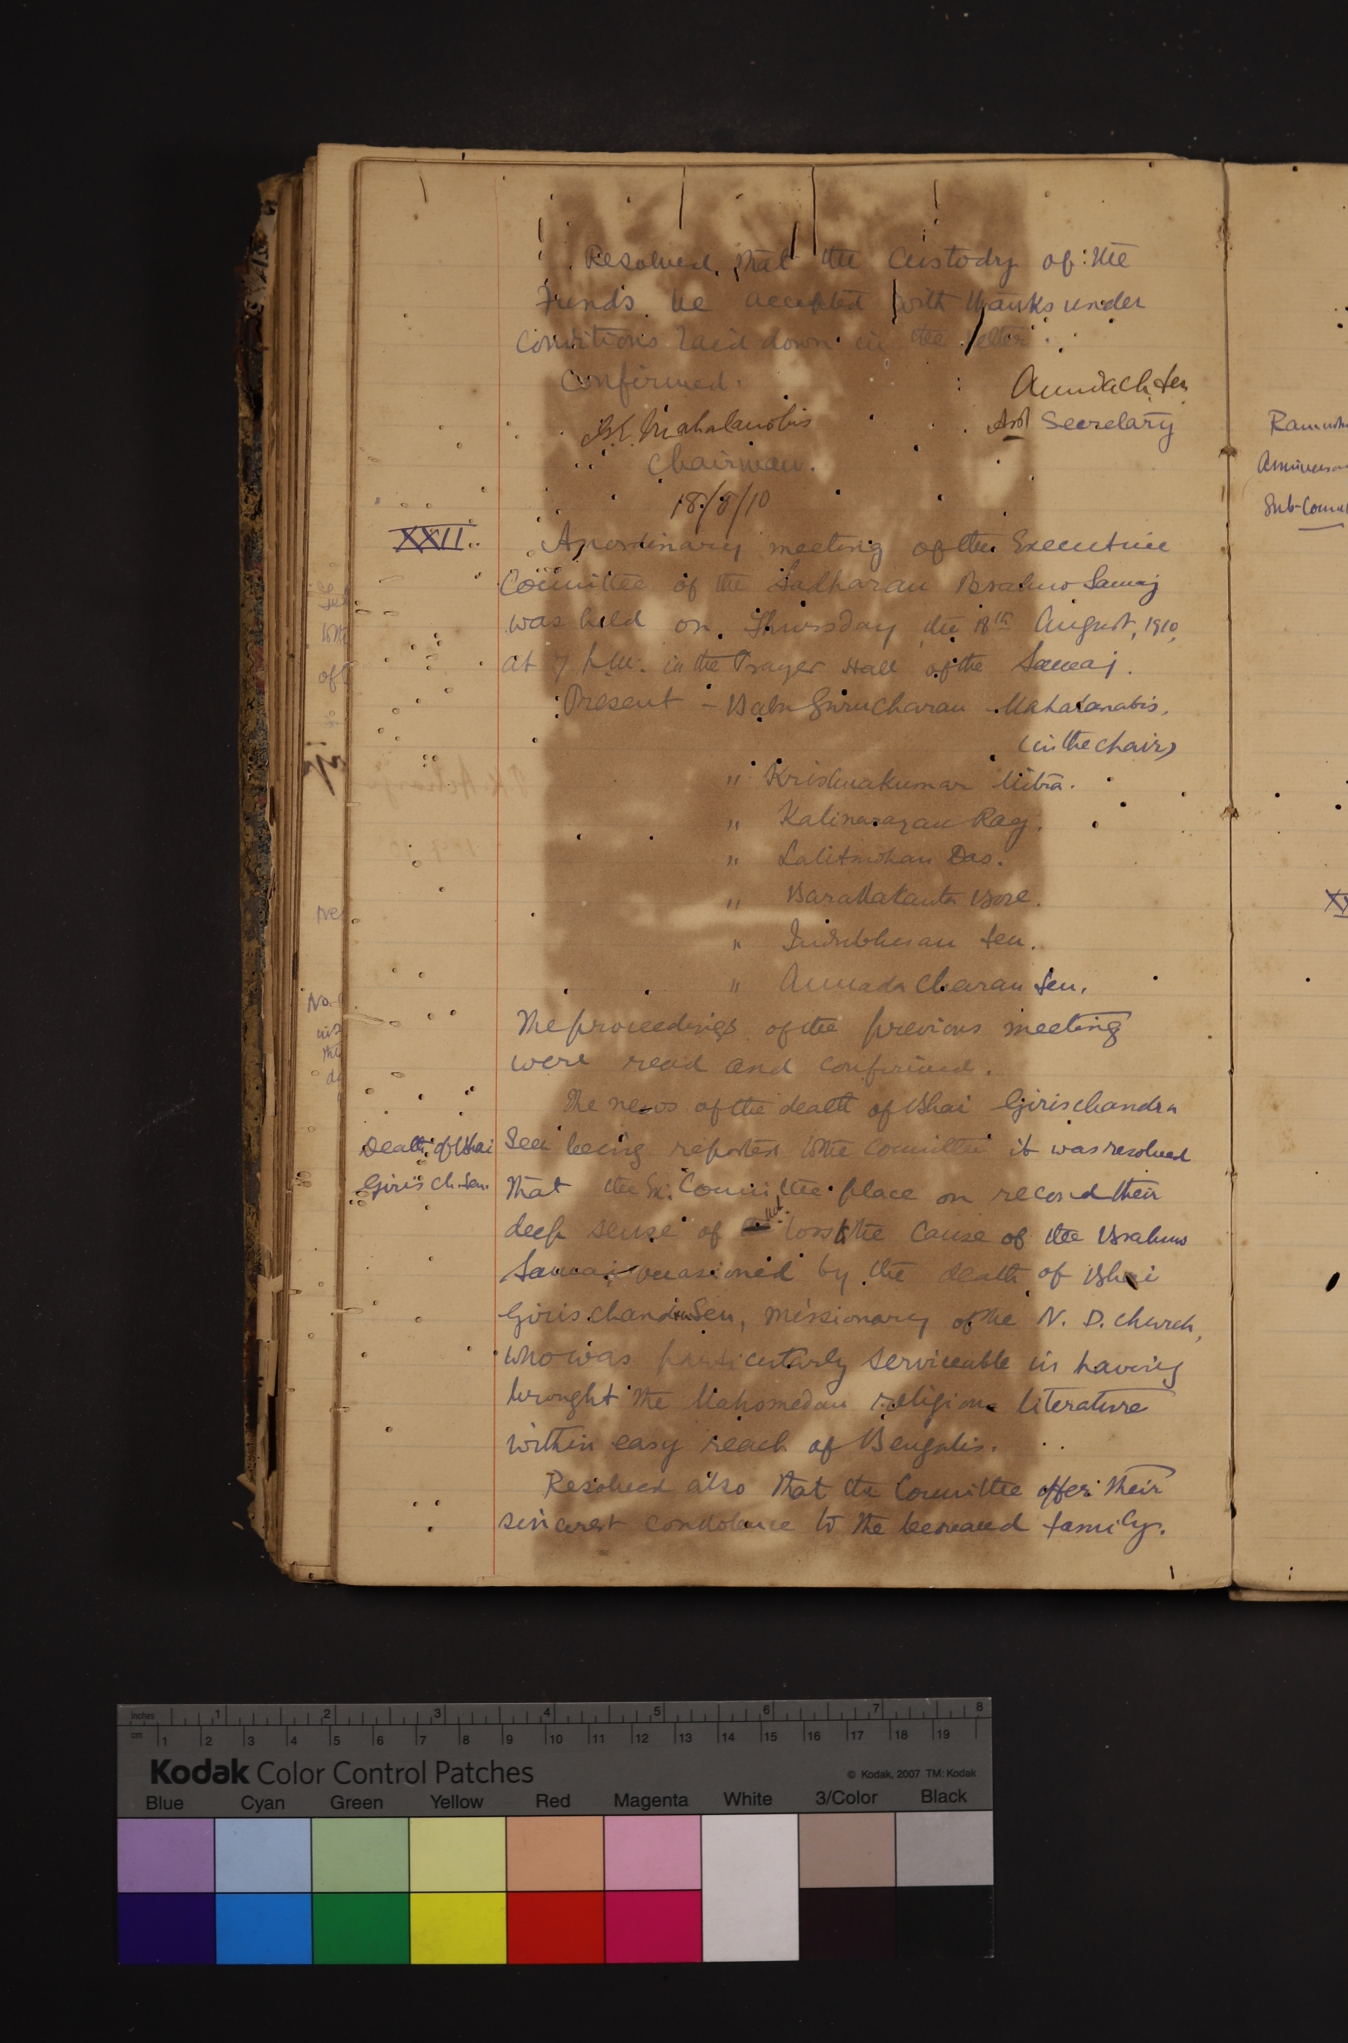 Resolved that the custody of the
Funds be accepted with thanks under
conditions laid down in the letter.
Confirmed.
Annada Ch. Sen
G. C. Mahalanobis
Asst Secretary
Chairman.
18/8/10
XXII.
An ordinary meeting of the Executive
Committee of the Sadharan Brahmo Samaj
was held on Thursday, the 18th August, 1910,
at 7 p.m. in the Prayer Hall of the Samaj.
Present - Babu Gurucharan Mahalanabis,
(in the chair)
" Krishnakumar Mitra.
" Kalinarayan Ray.
" Lalitmohan Das.
" Baradakanta Bose.
" Indubhusan Sen.
" Annada Charan Sen.
The proceedings of the previous meeting
were read and confirmed.
The news of the death of Bhai Girischandra
Death of Bhai
Giris Ch. Sen.
Sen being reported to the Committee it was resolved
that the Ex: Committee place on record their
deep sense of the loss to the cause of the Brahmo
Samaj occasioned by the death of Bhai
Girischandra Sen, missionary of the N. D. Church,
who was particularly serviceable in having
brought the Mahomedan religious literature
within easy reach of Bengalis.
Resolved also that the Committee offer their
sincerest condolence to the bereaved family.
inches 1 2 3 4 5 6 7 8
cm 1 2 3 4 5 6 7 8 9 10 11 12 13 14 15 16 17 18 19
Kodak Color Control Patches
© Kodak, 2007 TM: Kodak
Blue Cyan Green Yellow Red Magenta White 3/Color Black